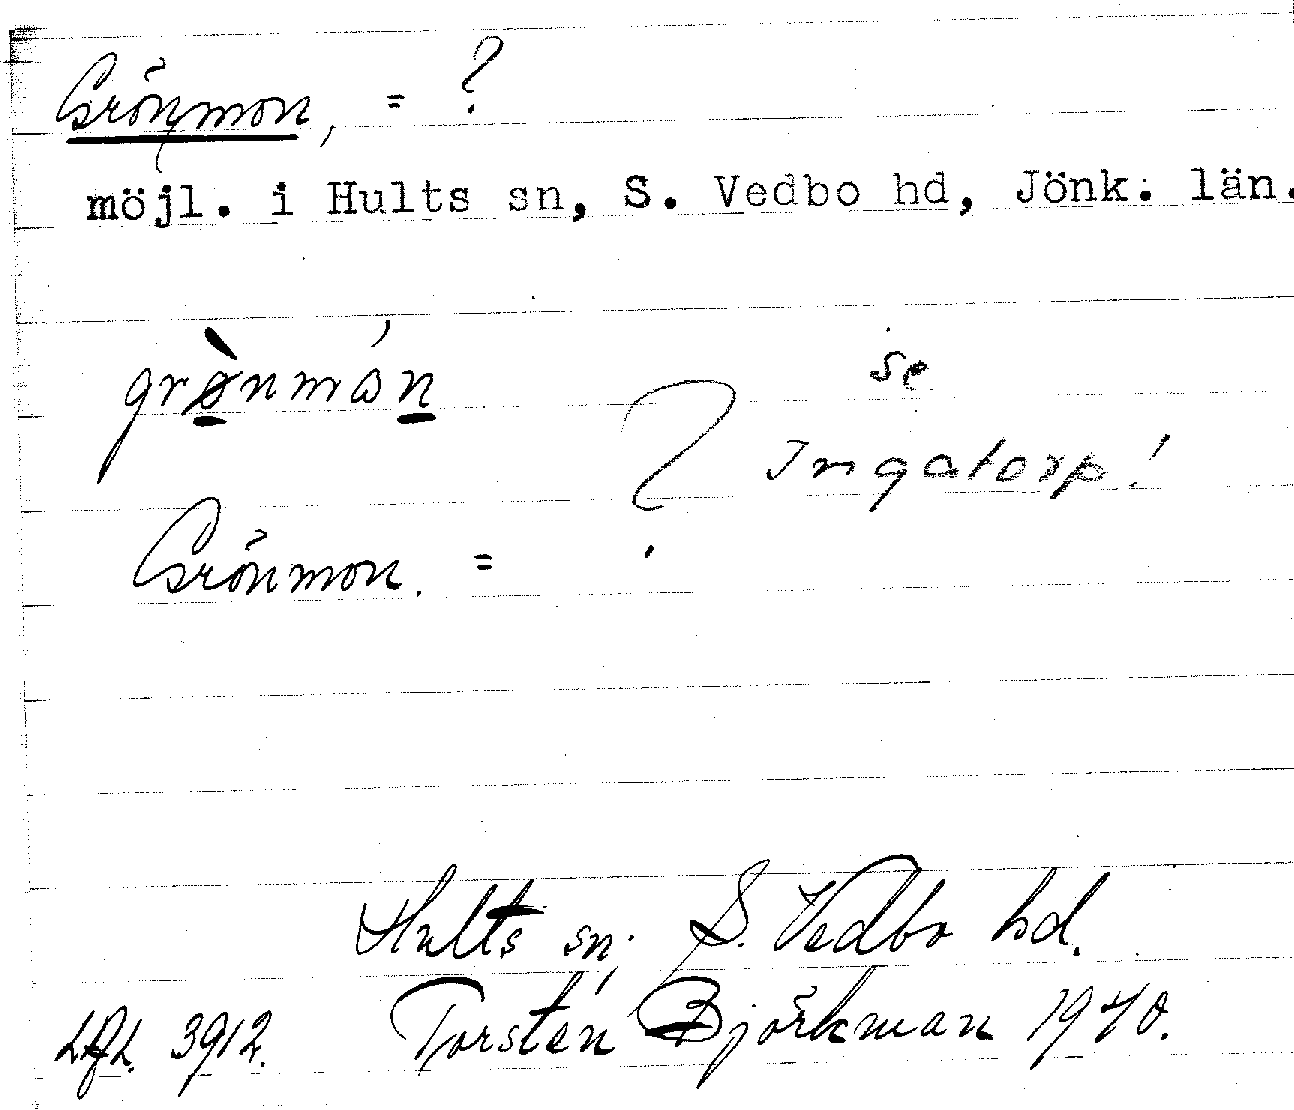 Grönmon, = ?
möjl. i Hults sn, S. Vedbo hd, Jönk. län.
grø̀nmán
se
Ingatorp!
Grönmon. = ?
Hults sn; S. Vedbo hd.
3912. Torsten Björkman 1940.